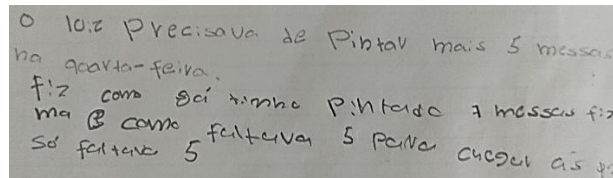 O luiz Precisava de Pintar mais 5 messas
na quarta-feira.
fiz como já tinha Pintado 7 messas fiz
ma como faltava 5 para chegar as
só faltava 5